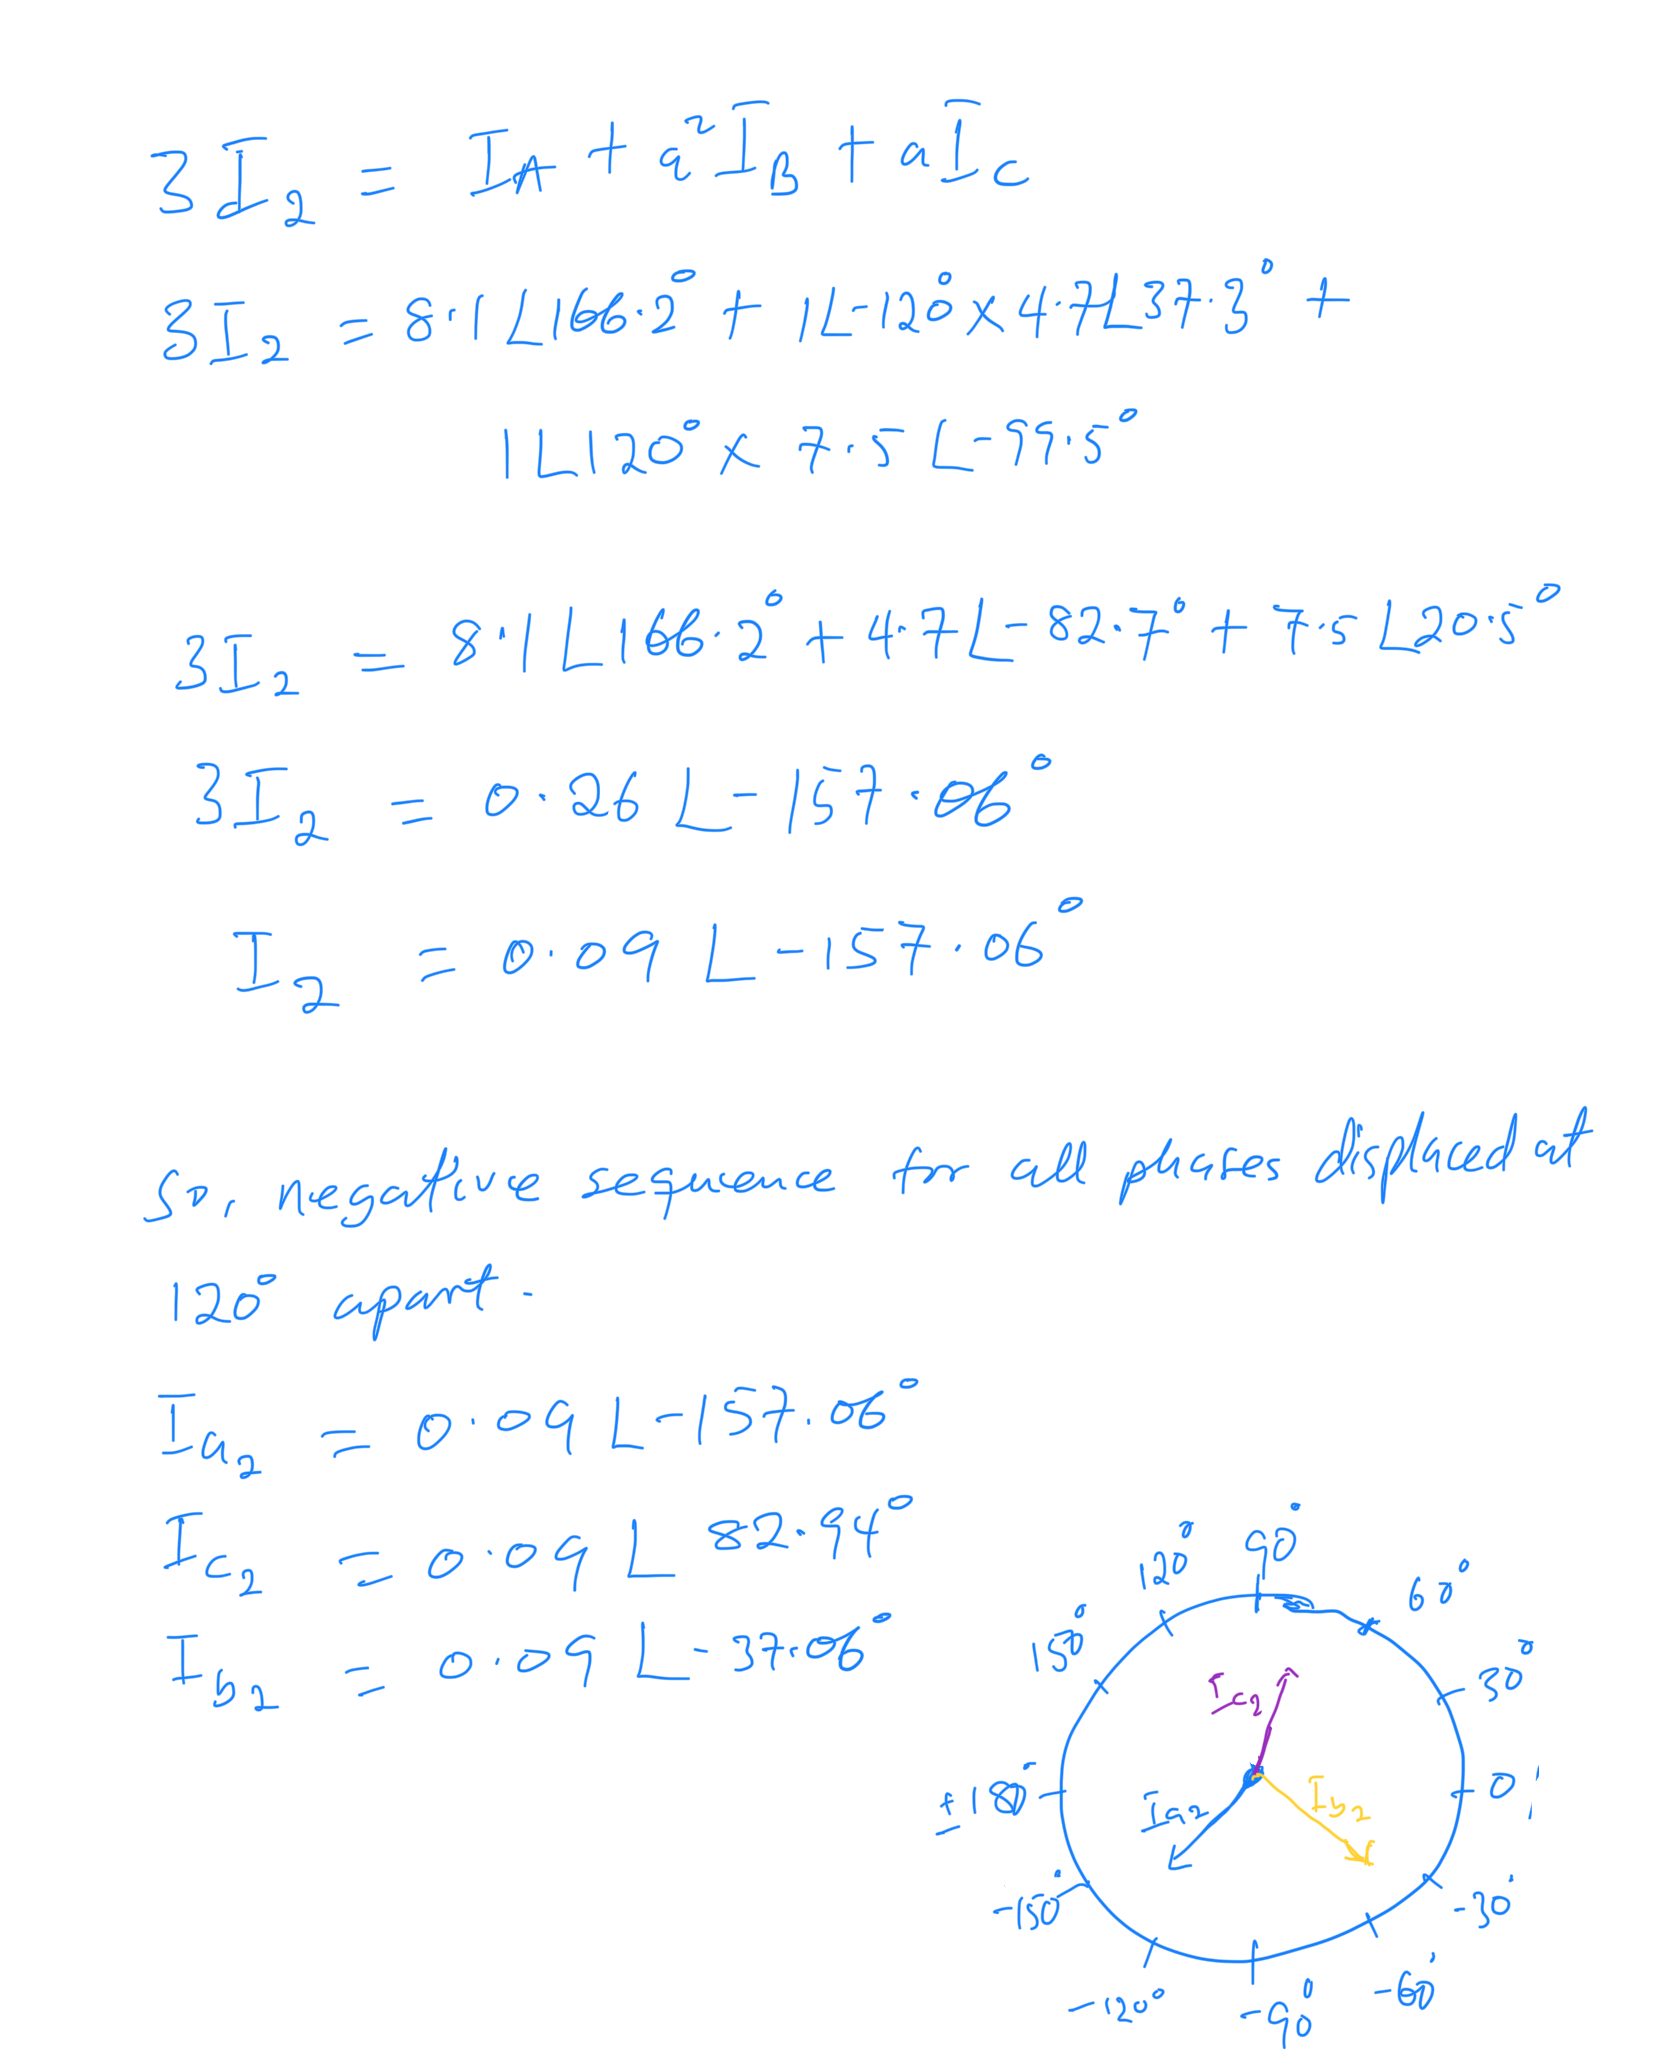 3I̅₂ = I̅_A + a²I̅_B + aI̅_C
3I̅₂ = 8.1∠166.2° + 1∠-120° × 4.7∠37.3° +
1∠120° × 7.5∠-99.5°
3I̅₂ = 8.1∠166.2° + 4.7∠-82.7° + 7.5∠20.5°
3I̅₂ = 0.26∠-157.06°
I̅₂ = 0.09∠-157.06°
So, negative sequence for all phases displaced at
120° apart.
I̅a₂ = 0.09∠-157.06°
I̅c₂ = 0.09∠82.94°
I̅b₂ = 0.09∠-37.06°
90°
120°
60°
150°
30°
Ic₂
±180°
Ia₂
Ib₂
0°
-150°
-30°
-120°
-90°
-60°